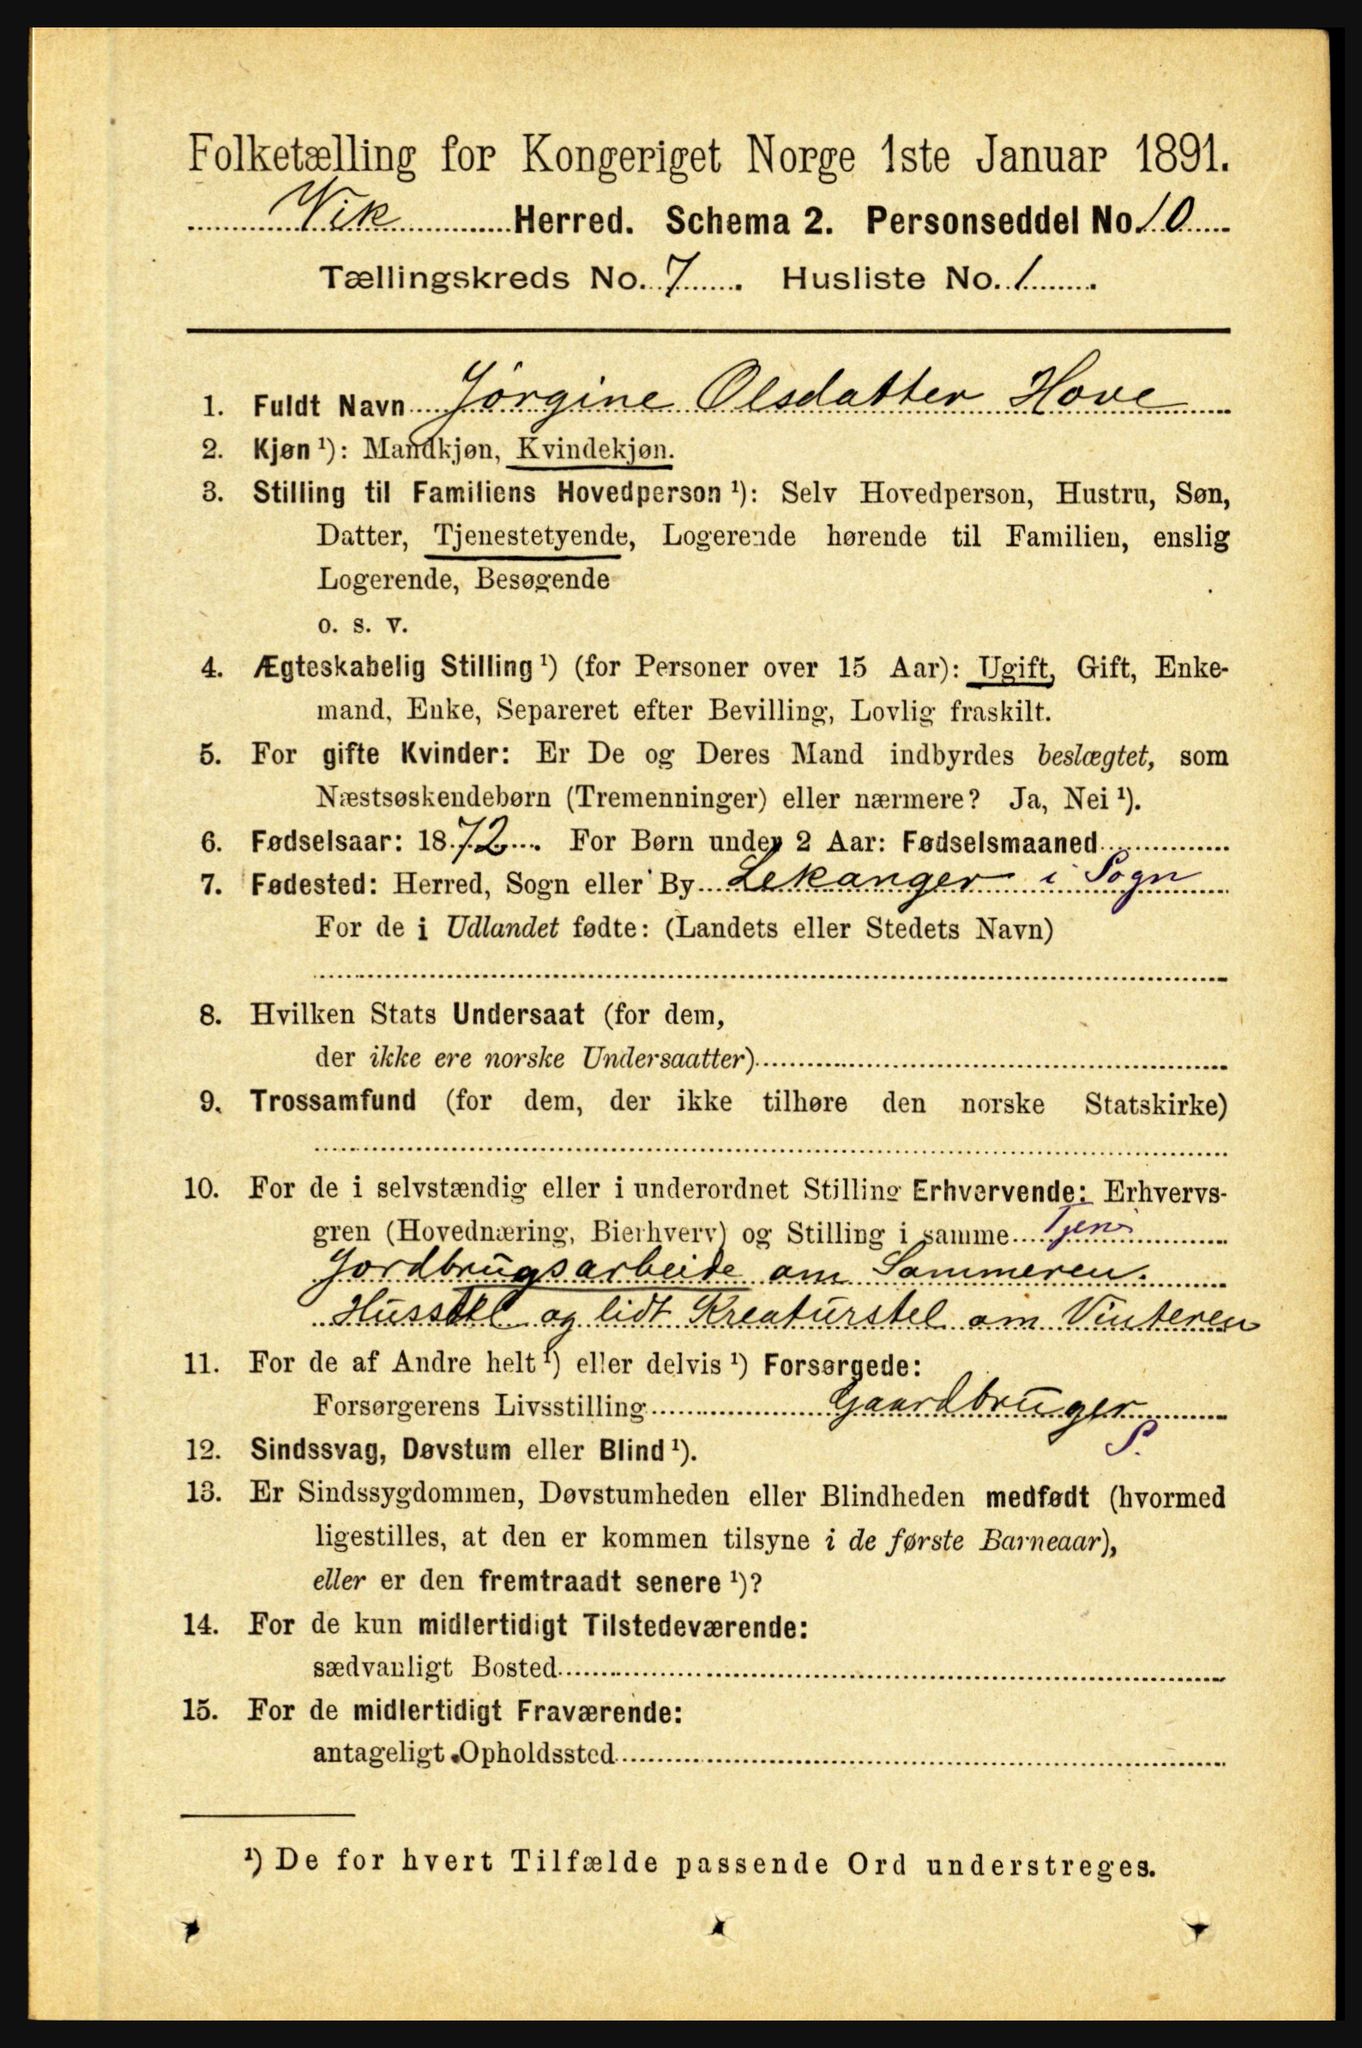 Folketælling for Kongeriget Norge 1ste Januar 1891.
Vik Herred. Schema 2. Personseddel No. 10
Tællingskreds No. 7. Husliste No. 1.
1. Fuldt Navn Jørgine Olsdatter Hove
2. Kjøn ¹): Mandkjøn, Kvindekjøn.
3. Stilling til Familiens Hovedperson ¹): Selv Hovedperson, Hustru, Søn,
Datter, Tjenestetyende, Logerende hørende til Familien, enslig
Logerende, Besøgende
o. s. v.
4. Ægteskabelig Stilling ¹) (for Personer over 15 Aar): Ugift, Gift, Enke-
mand, Enke, Separeret efter Bevilling, Lovlig fraskilt.
5. For gifte Kvinder: Er De og Deres Mand indbyrdes beslægtet, som
Næstsøskendebørn (Tremenninger) eller nærmere? Ja, Nei ¹).
6. Fødselsaar: 1872. For Børn under 2 Aar: Fødselsmaaned
7. Fødested: Herred, Sogn eller By Lekanger i Sogn
For de i Udlandet fødte: (Landets eller Stedets Navn)
8. Hvilken Stats Undersaat (for dem,
der ikke ere norske Undersaatter)
9. Trossamfund (for dem, der ikke tilhøre den norske Statskirke)
10. For de i selvstændig eller i underordnet Stilling Erhvervende: Erhvervs-
gren (Hovednæring, Bierhverv) og Stilling i samme Tjen.
Jordbrugsarbeide om Sommeren.
Husstel og lidt Kreaturstel om Vinteren
11. For de af Andre helt ¹) eller delvis ¹) Forsørgede:
Forsørgerens Livsstilling Gaardbruger
S.
12. Sindssvag, Døvstum eller Blind ¹).
13. Er Sindssygdommen, Døvstumheden eller Blindheden medfødt (hvormed
ligestilles, at den er kommen tilsyne i de første Barneaar),
eller er den fremtraadt senere ¹)?
14. For de kun midlertidigt Tilstedeværende:
sædvanligt Bosted
15. For de midlertidigt Fraværende:
antageligt Opholdssted
¹) De for hvert Tilfælde passende Ord understreges.